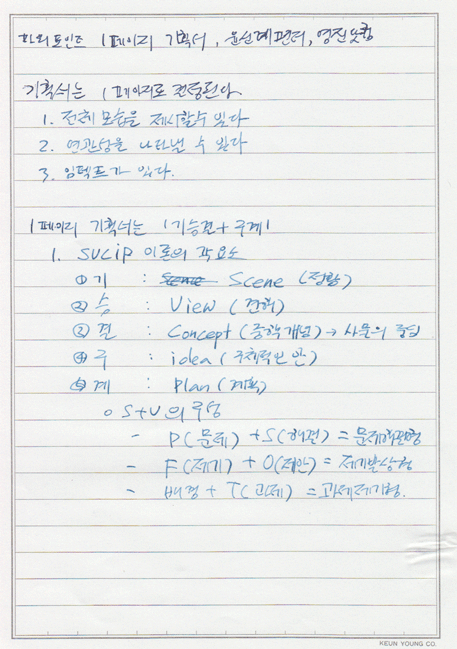 한장 포인트 1페이지 기획서, 영진닷컴
기획서는 1페이지로 전달된다.
1. 전체 모습을 제시할 수 있다
2. 연관성을 나타낼 수 있다
3. 임팩트가 있다.
1페이지 기획서는 「기승결+구계」
1. SVCiP 이론의 각 요소
① 기 : Scene (정황)
② 승 : View (견해)
③ 결 : Concept (중핵개념) →
④ 구 : idea (구체적인 안)
⑤ 계 : Plan (계획)
o S+V의 구성
- P(문제) + S(해결) = 문제해결형
- F( ) + O(제안) =
- 배경 + T(과제) = 과제제기형.
KEUN YOUNG CO.